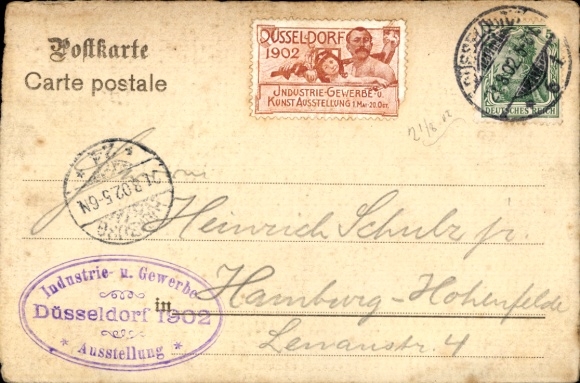 Postkarte
Carte postale
DÜSSELDORF
1902
INDUSTRIE-GEWERBE- U.
KUNST AUSSTELLUNG 1 MAI-20. OCT.
DEUTSCHES REICH
21/8 02
21.8.02.5-6N
Heinrich Schulz jr.
in
Hamburg-Hohenfelde
Industrie- u. Gewerbe
Düsseldorf 1902
* Ausstellung *